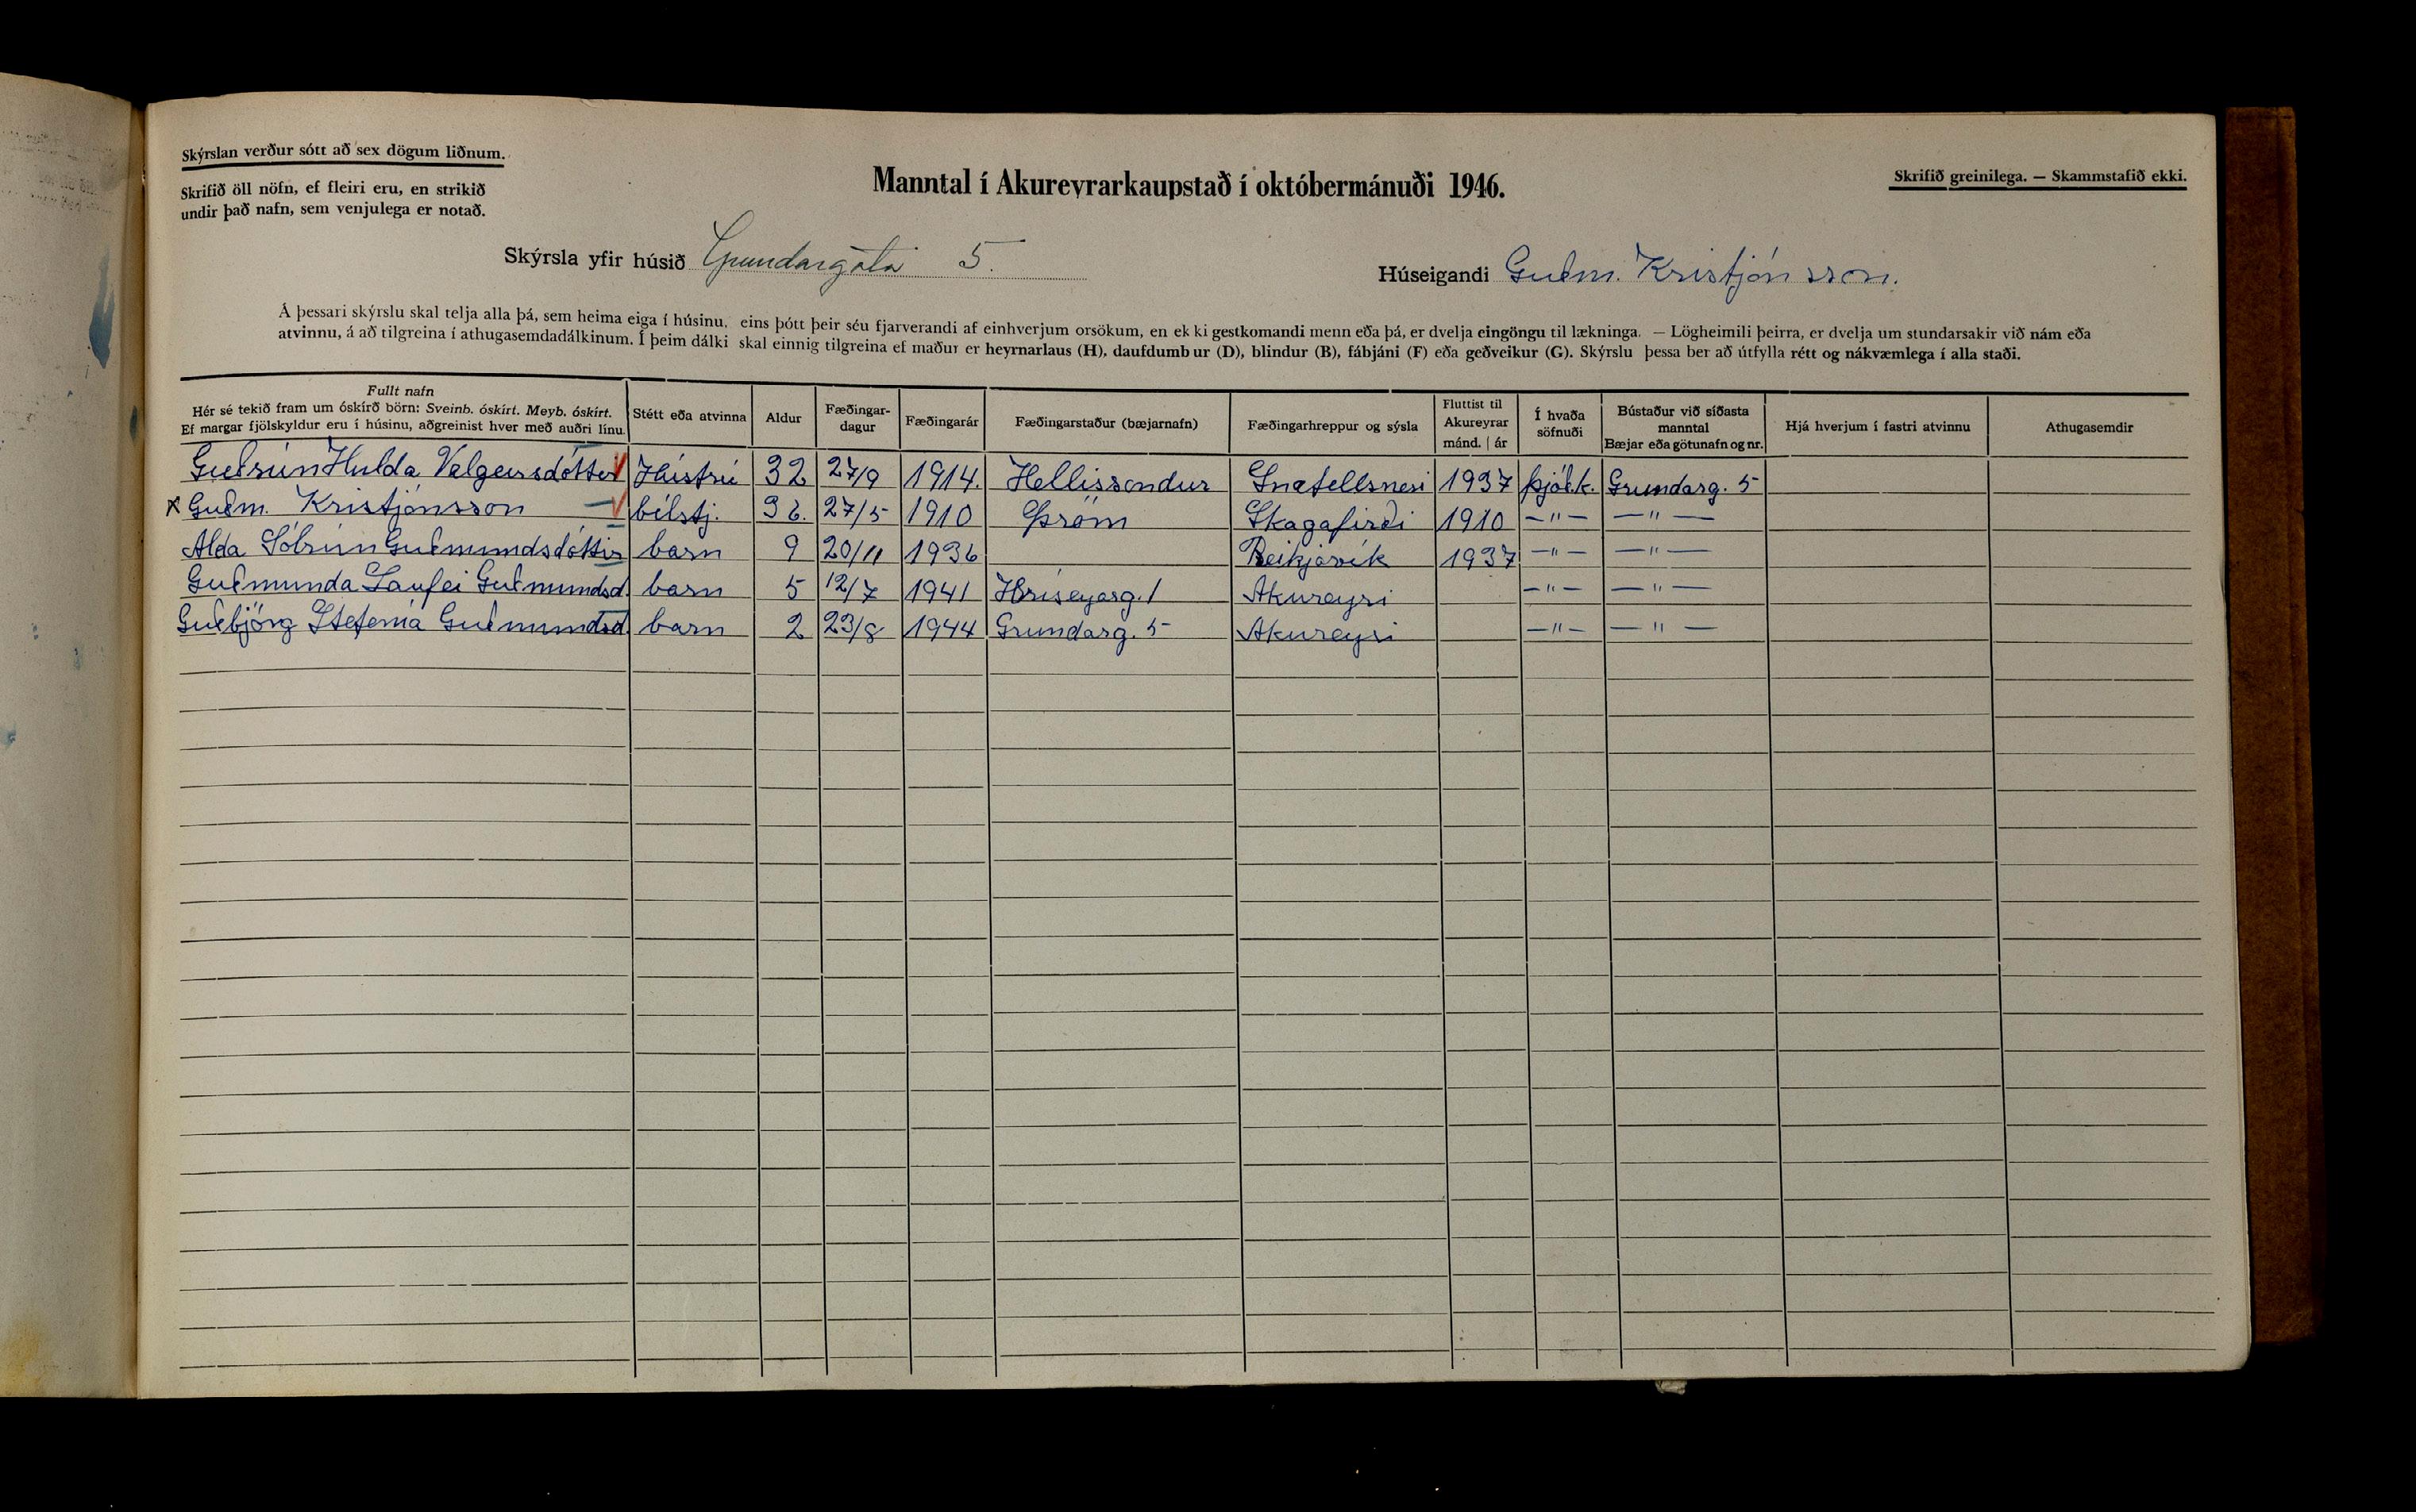 Skýrslan verður sótt að sex dögum liðnum.
Skrifið öll nöfn, ef fleiri eru, en strikið
undir það nafn, sem venjulega er notað.
Manntal í Akureyrarkaupstað í októbermánuði 1946.
Skrifið greinilega. — Skammstafið ekki.
Skýrsla yfir húsið Grundargata 5.
Húseigandi Guðm. Kristjónsson.
Á þessari skýrslu skal telja alla þá, sem heima eiga í húsinu, eins þótt þeir séu fjarverandi af einhverjum orsökum, en ekki gestkomandi menn eða þá, er dvelja eingöngu til lækninga. — Lögheimili þeirra, er dvelja um stundarsakir við nám eða
atvinnu, á að tilgreina í athugasemdadálkinum. Í þeim dálki skal einnig tilgreina ef maður er heyrnarlaus (H), daufdumbur (D), blindur (B), fábjáni (F) eða geðveikur (G). Skýrslu þessa ber að útfylla rétt og nákvæmlega í alla staði.
Fullt nafn
Hér sé tekið fram um óskírð börn: Sveinb. óskírt. Meyb. óskírt.
Ef margar fjölskyldur eru í húsinu, aðgreinist hver með auðri línu.
Stétt eða atvinna
Aldur
Fæðingar-
dagur
Fæðingarár
Fæðingarstaður (bæjarnafn)
Fæðingarhreppur og sýsla
Fluttist til
Akureyrar
mánd. | ár
Í hvaða
söfnuði
Bústaður við síðasta
manntal
Bæjar eða götunafn og nr.
Hjá hverjum í fastri atvinnu
Athugasemdir
Guðrún Hulda Valgeirsdóttir Hústrú 32 27/9 1914. Hellissandur Snæfellsnesi 1937 þjóðk. Grundarg. 5
x Guðm. Kristjónsson bílstj. 36. 27/5 1910 Þröm Skagafirði 1910 —"— —"—
Alda Sólrún Guðmundsdóttir barn 9 20/11 1936 Reikjavík 1937 —"— —"—
Guðmunda Laufei Guðmundsd. barn 5 12/7 1941 Hríseyarg. 1 Akureyri —"— —"—
Guðbjörg Stefenía Guðmundsd. barn 2 23/8 1944 Grundarg. 5 Akureyri —"— —"—